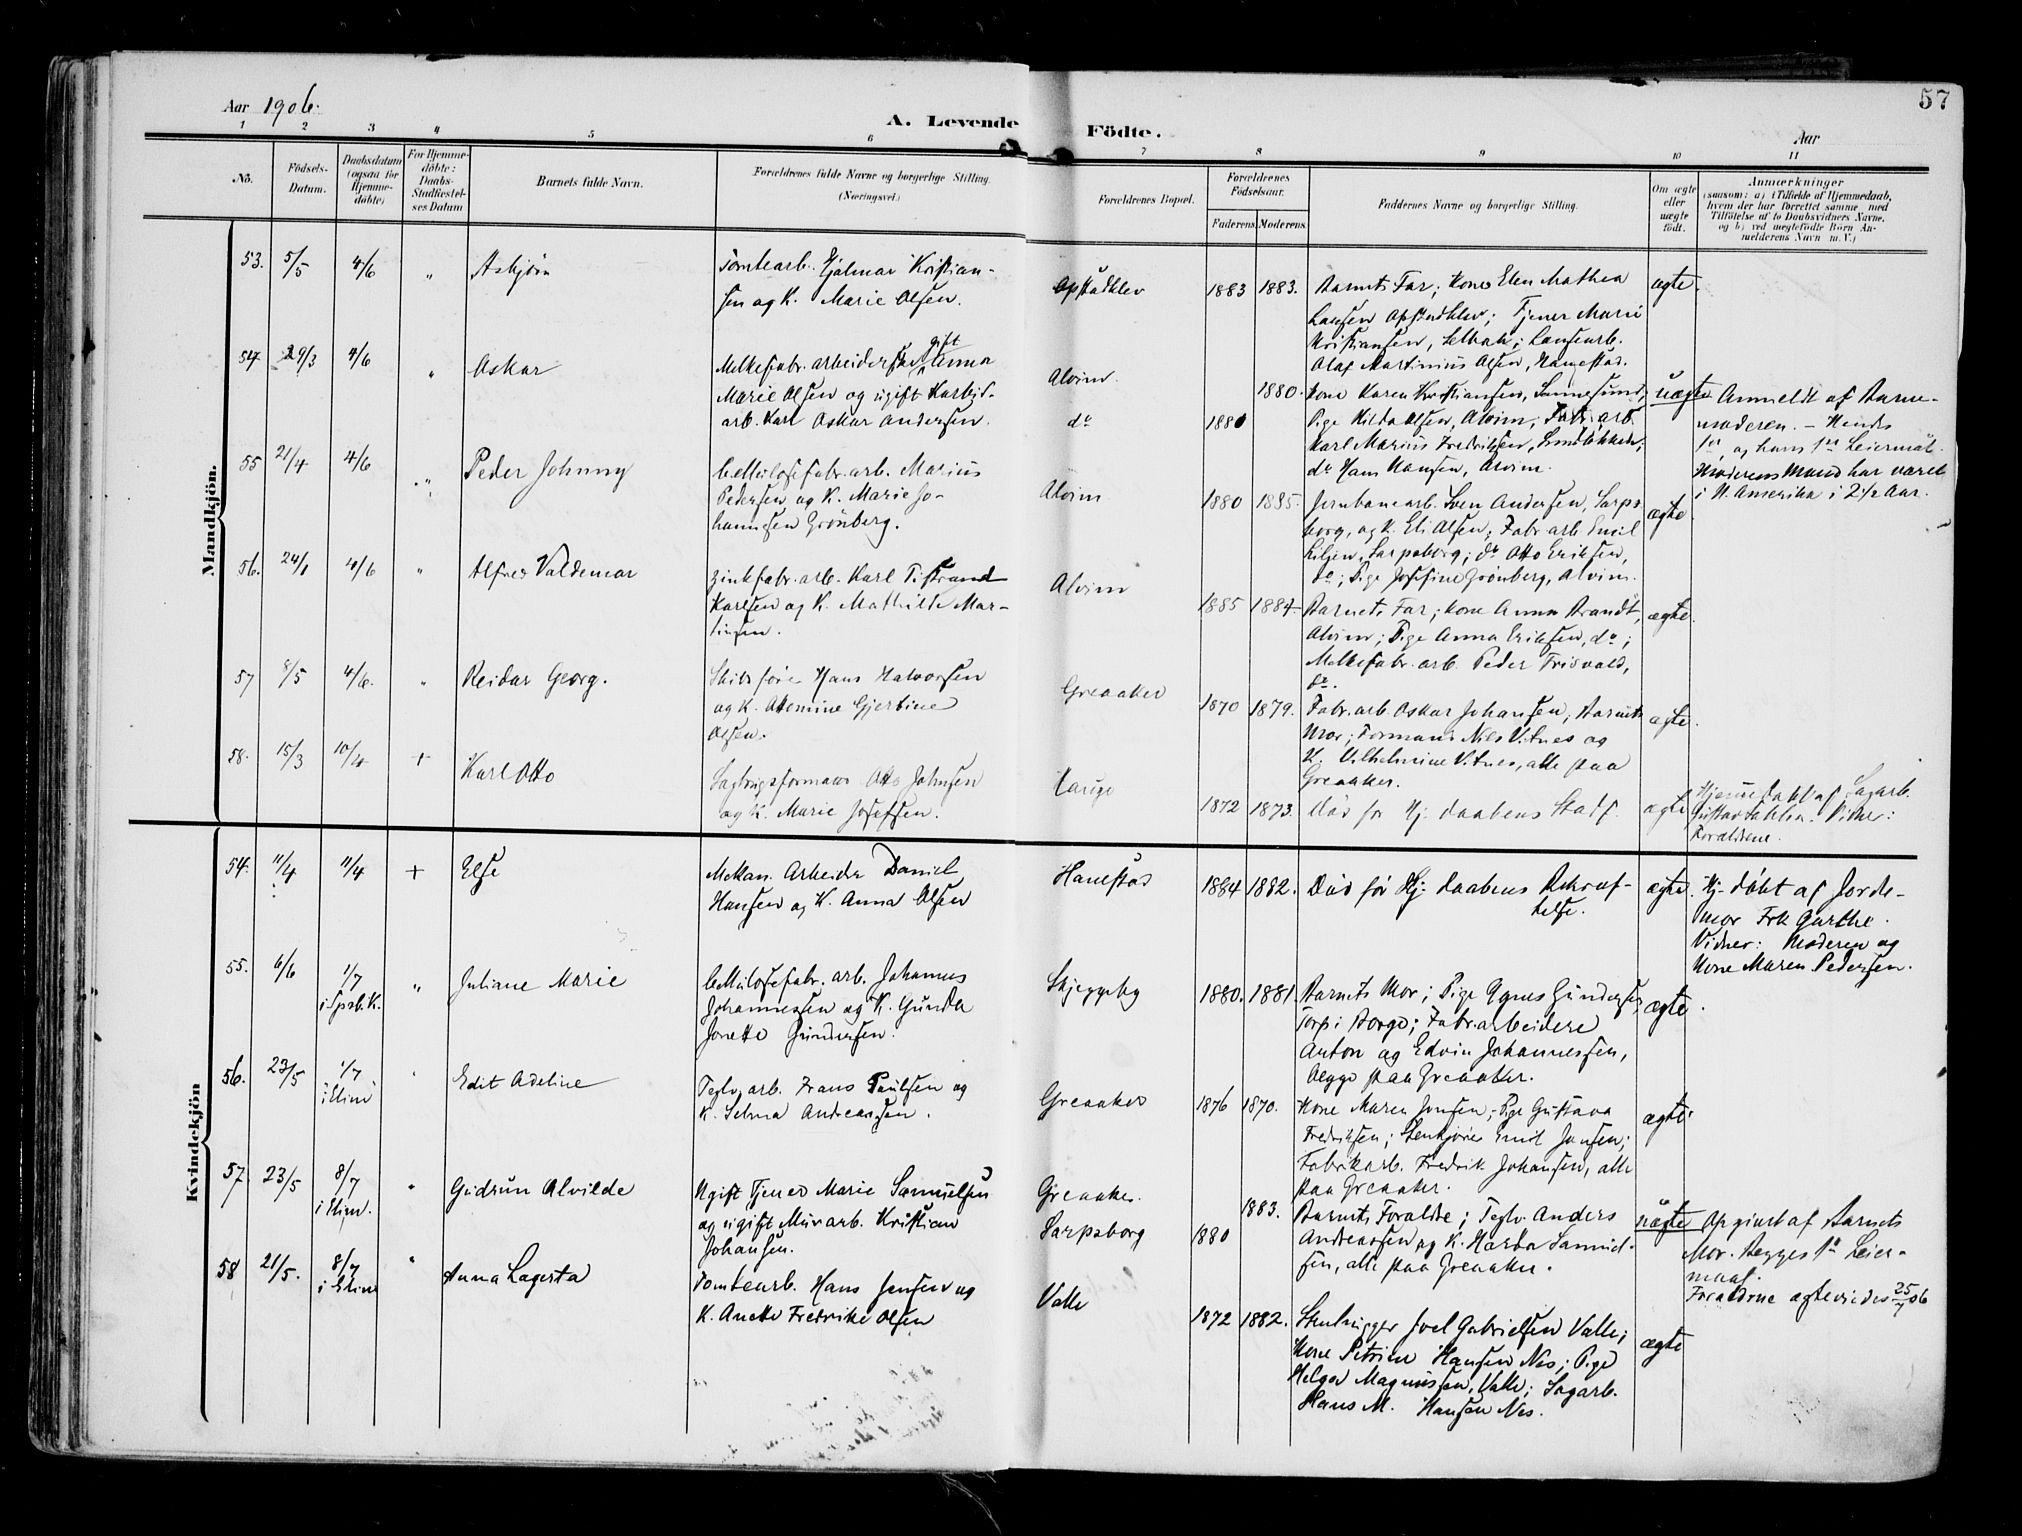 57
Aar 1906.
A. Levende Födte.
Aar
1 2 3 4 5 6 7 8 9 10 11
No.
Födsels-
Datum.
Daabsdatum
(ogsaa for
Hjemme-
döbte)
For Hjemme-
döbte:
Daabs-
Stadfæstel-
ses Datum
Barnets fulde Navn.
Forældrenes fulde Navne og borgerlige Stilling.
(Næringsvei.)
Forældrenes Bopæl.
Forældrenes
Födselsaar.
Faderens Moderens
Faddernes Navne og borgerlige Stilling.
Om ægte
eller
uægte
födt.
Anmærkninger
(saasom: a) i Tilfælde af Hjemmedaab,
hvem der har forrettet samme, med
Tilföielse af to Daabsvidners Navne,
og b) ved uægtefödte Börn An-
melderens Navn m. V.)
Mandkjön.
53. 5/5 4/6 " Asbjørn
Tomtearb. Hjalmar Kristian-
sen og K. Marie Olsen.
Opstadklev 1883 1883.
Barnets Far; Kone Elen Mathea
Larssen Opstadklev; Tjener Marie
Kristiansen, Selbak; Landsarb.
Olaf Martinius Olsen, Hanestad.
ægte.
54. 29/3 4/6 " Oskar
Melkefabr. arbeiderske gift Anna
Marie Olsen og ugift Karbid-
arb. Karl Oskar Andersen.
Alvim.
do
1880.
1880
Kone Karen Kristiansen, Sannesund;
Pige Hilda Olsen, Alvim; Fabr. arb.
Karl Marius Fredriksen, Lundløkken;
do Hans Hansen, Alvim.
uægte
Anmeldt af Barne-
moderen. – Hendes
1ste, og hans 1ste Leiermål.
Moderens Mand har været
i N. Amerika i 2 1/2 Aar.
55 21/4 4/6 " Peder Johnny
Cellulosefabr. arb. Marius
Pedersen og K. Marie Jo-
hannesen Grønberg.
Alvim 1880 1885.
Jernbanearb. Sven Andersen, Sarps-
borg, og K. Eli Olsen; Fabr. arb. Emil
Liljen, Sarpsborg; do Otto Eriksen,
do; Pige Josefine Grønberg, Alvim.
ægte
56. 4/6 " Alfred Valdemar
Zinkfabr. arb. Karl Tistrand
Karlsen og K. Mathilde Mar-
tinsen.
Alvim 1885 1884.
Barnets Far; Kone Anna Brandt,
Alvim; Pige Anna Eriksen, do;
Melkefabr. arb. Peder Frisvald,
do.
ægte.
57 8/5 4/6. " Reidar Georg.
Skibsfører Hans Halvorsen
og K. Ottomine Gjertine
Olsen.
Greaaker 1870 1879.
Fabr. arb. Oskar Johansen; Barnets
Mor; Formand Nils Vitnes og
K. Vilhelmine Vitnes, alle paa
Greaaker.
ægte.
58. 15/3 + Karl Otto
Sagbrugsformand Otto Johnsen
og K. Marie Josefsen.
1872 1873.
Død før Hj. daabens Stadf.
ægte
Hjemmedøbt af Sagarb.
Gustav Dahlin. Vidner:
Forældrene.
Kvindekjön
54. 11/4 11/4 + Else
Mekan. Arbeider Daniel
Hansen og K. Anna Olsen
Hanestad 1884 1882.
Død før Hj. daabens Bekræf-
telse.
ægte.
Hj. døbt af Jorde-
mor Frk Garthe.
Vidner: Moderen og
Kone Maren Pedersen.
55. 6/6 1/7
i Spsb. K.
" Juliane Marie
Cellulosefabr. arb. Johannes
Johannessen og K. Gunda
Jonette Gundersen.
Skjeggeby 1880. 1881.
Barnets Mor; Pige Agnes Gundersen,
Torp i Borge; Fabr. arbeidere
Anton og Edvin Johannessen,
begge paa Greaaker.
ægte.
56. 23/5 1/7
i Elim
" Edit Adeline
Teglv. arb. Frans Paulsen og
K. Selma Andreassen.
Greaaker 1876 1870.
Kone Maren Jensen; Pige Gustava
Fredriksen; Stenkjører Emil Jansen;
Fabrikarb. Fredrik Johansen, alle
paa Greaaker.
ægte.
57. 23/5 8/7
i Elim.
" Gudrun Alvilde
Ugift Tjener Marie Samuelsen
og ugift Murarb. Kristian
Johansen.
Greaaker.
Sarpsborg
1883.
1880
Barnets Forældre; Teglv. Anders
Andreassen og K. Harda Samuel-
sen, alle paa Greaaker.
uægte
Opgivet af Barnets
Mor. Begges 1ste Leier-
maal.
Forældrene ægteviedes 25/7 06
58 21/5. 8/7
i Elim
" Anna Lagerta
Tomtearb. Hans Jensen og
K. Anette Fredrikke Olsen
Valle 1872 1882.
Stenhugger Joel Gabrielsen Valle;
Kone Petrine Hansen Nes; Pige
Helga Magnussen, Valle; Sagarb.
Hans M. Hansen Nes.
ægte